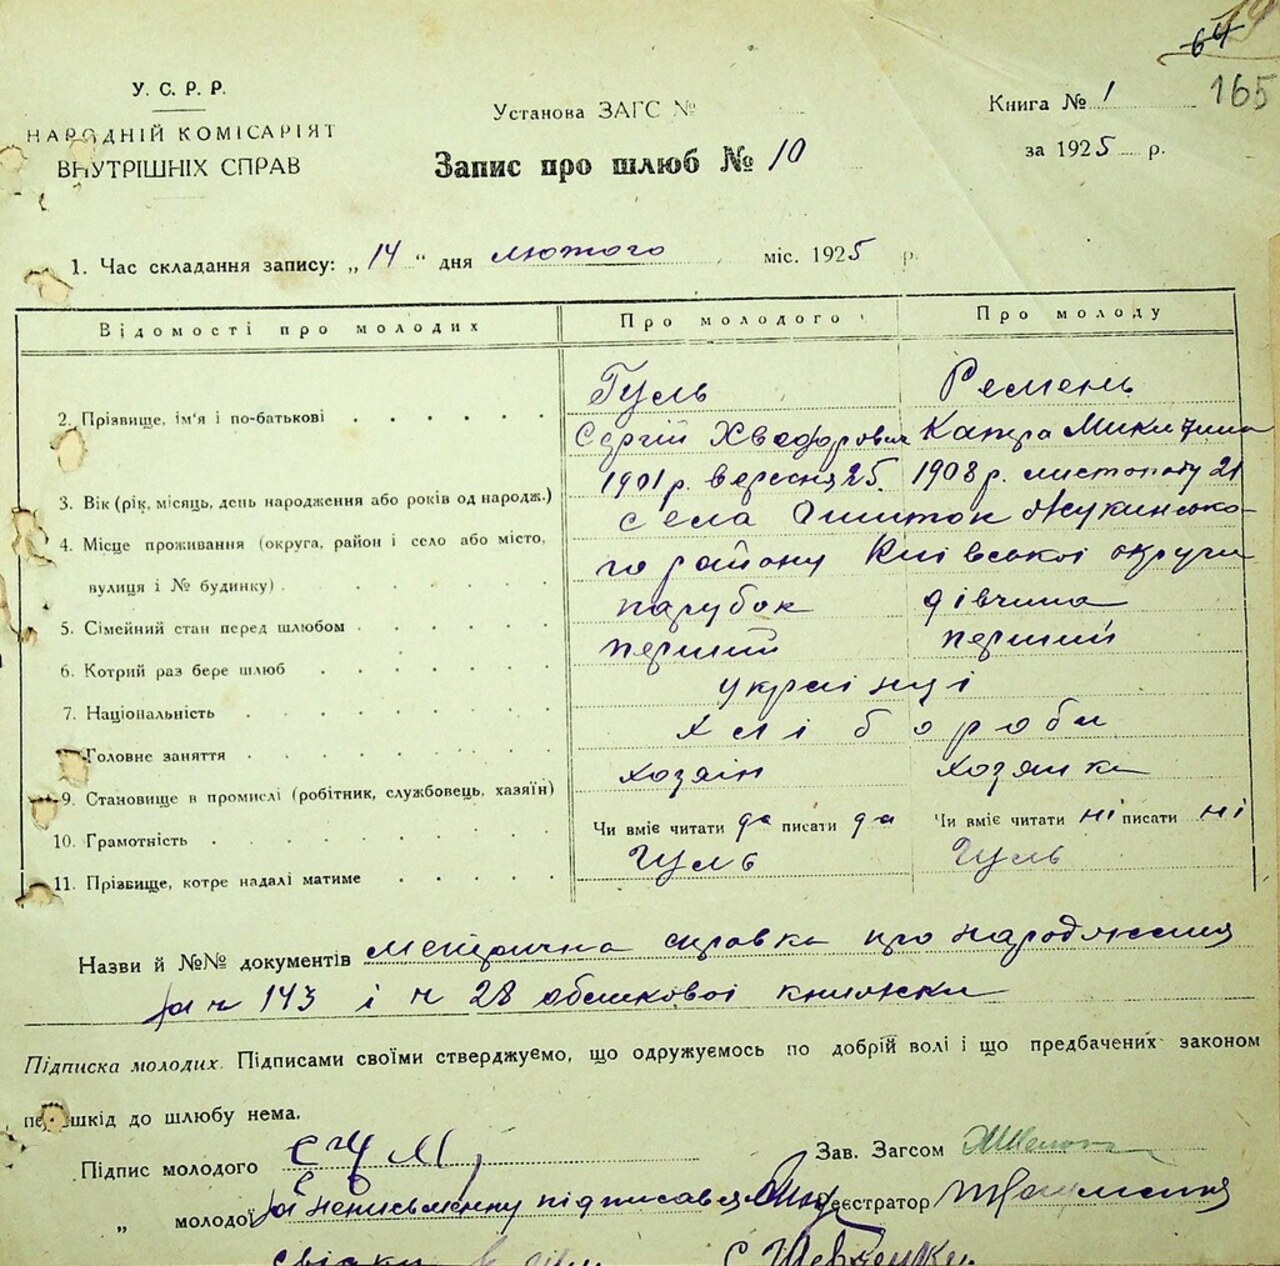 64
165
У. С. Р. Р.
НАРОДНІЙ КОМІСАРІЯТ
ВНУТРІШНІХ СПРАВ
Установа ЗАГС №
Запис про шлюб № 10
Книга № 1
за 1925 р.
1. Час складання запису: „14“ дня лютого міс. 1925 р.
Відомості про молодих Про молодого Про молоду
Гуль Ремень
2. Прізвище, ім'я і по-батькові
Сергій Хведорович Капра Микитина
1901 р. вересня 25. 1908 р. листопаду 21
3. Вік (рік, місяць, день народження або років од народж.)
села Жукинсько-
4. Місце проживання (округа, район і село або місто,
го району Київської округи
вулиця і № будинку)
парубок дівчина
5. Сімейний стан перед шлюбом
перший перший
6. Котрий раз бере шлюб
українці
7. Національність
хліборобы
Головне заняття
хозяін хозяйка
9. Становище в промислі (робітник, службовець, хазяїн)
Чи вміє читати да писати да Чи вміє читати ні писати ні
10. Грамотність
Гуль Гуль
11. Прізвище, котре надалі матиме
Назви й №№ документів метрична справка про народження
за ч 143 і ч 28 обшкової книжки
Підписка молодих. Підписами своїми стверджуємо, що одружуємось по добрій волі і що предбачених законом
перешкід до шлюбу нема.
Підпис молодого
Зав. Загсом
„ молодої за неписьменну підписався
Реєстратор
свідки
С Шевченко